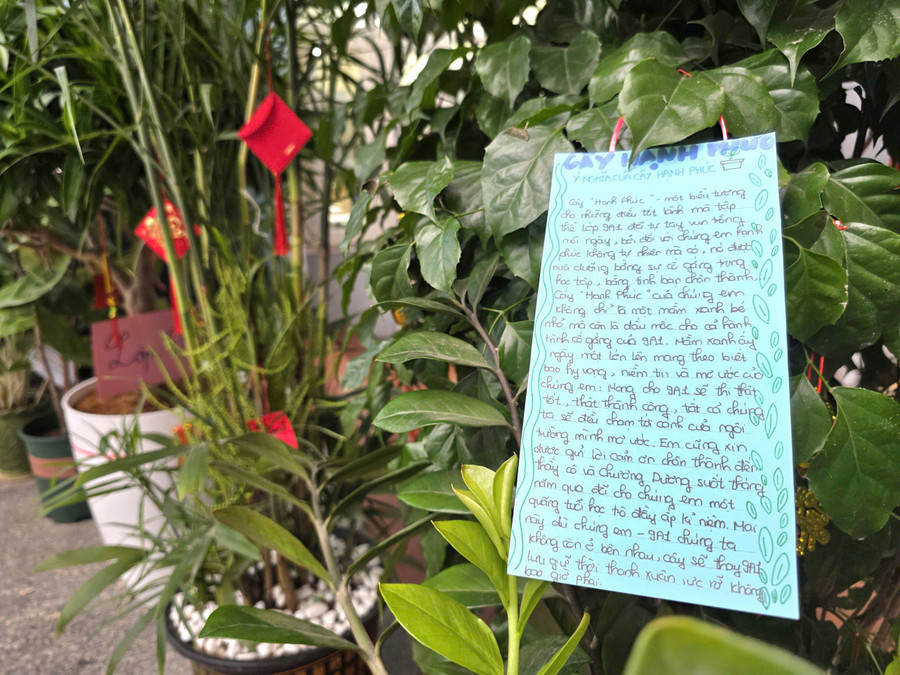 CÂY HẠNH PHÚC
Ý NGHĨA CỦA CÂY HẠNH PHÚC
Cây "Hạnh Phúc" - một biểu tượng
cho những điều tốt lành mà tập
thể lớp 9A1 đôi tự tay vun trồng
mỗi ngày, bởi đối với chúng em hạnh
phúc không tự nhiên mà có, nó được
nuôi dưỡng bằng sự cố gắng trong
học tập, bằng tình bạn chân thành.
Cây "Hạnh Phúc" của chúng em
không chỉ là một mầm xanh bé
nhỏ mà còn là dấu mốc cho cả hành
trình cố gắng của 9A1. Mầm xanh ấy
ngày một lớn lên mang theo biết
bao hy vọng, niềm tin và mơ ước của
chúng em: Mong cho 9A1 sẽ thi thật
tốt, thật thành công, tất cả chúng
ta sẽ đều chạm tới cánh cửa ngôi
trường mình mơ ước. Em cũng xin
được gửi lời cảm ơn chân thành đến
thầy cô và Chương Dương suốt tháng
năm qua đã cho chúng em một
quãng tuổi học trò đầy ắp kỉ niệm. Mai
này dù chúng em - 9A1 chúng ta
không còn ở bên nhau, cây sẽ thay 9A1
lưu giữ thời thanh xuân rực rỡ không
bao giờ phai.
Lớp